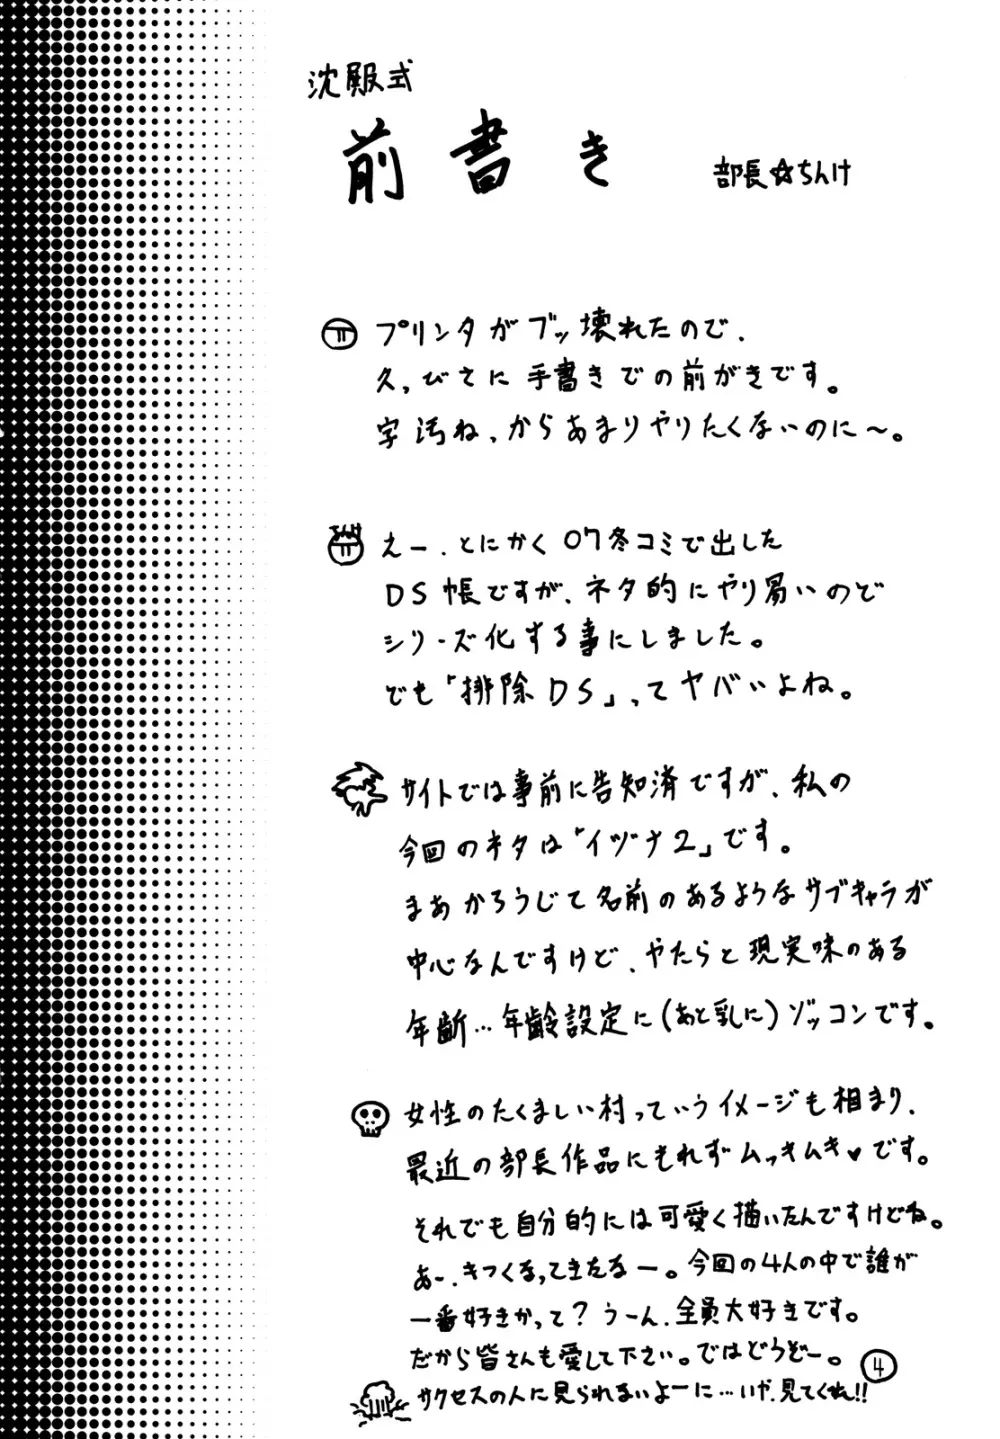 沈殿式
前書き
部長☆ちんけ
プリンタがブッ壊れたので、
久っびさに手書きでの前がきです。
字汚ねっからあまりやりたくないのに〜。
えー、とにかく07冬コミで出した
DS帳ですが、ネタ的にやり易いので
シリーズ化する事にしました。
でも「排除DS」ってヤバいよね。
サイトでは事前に告知済ですが、私の
今回のネタは「イヅナ2」です。
まあかろうじて名前のあるようなサブキャラが
中心なんですけど、やたらと現実味のある
年齢…年齢設定に(あと乳に)ゾッコンです。
女性のたくましい村っていうイメージも相まり、
最近の部長作品にもれずムッキムキ♥です。
それでも自分的には可愛く描いたんですけどね。
あー、きつくなってきたなー。今回の4人の中で誰が
一番好きかって?うーん、全員大好きです。
だから皆さんも愛して下さい。ではどうぞー。
サクセスの人に見られないよーに…いや、見てくれ!!
4